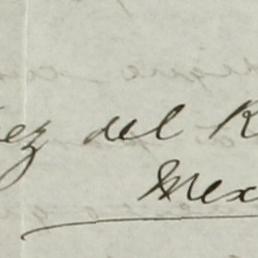 ez del R
Mex